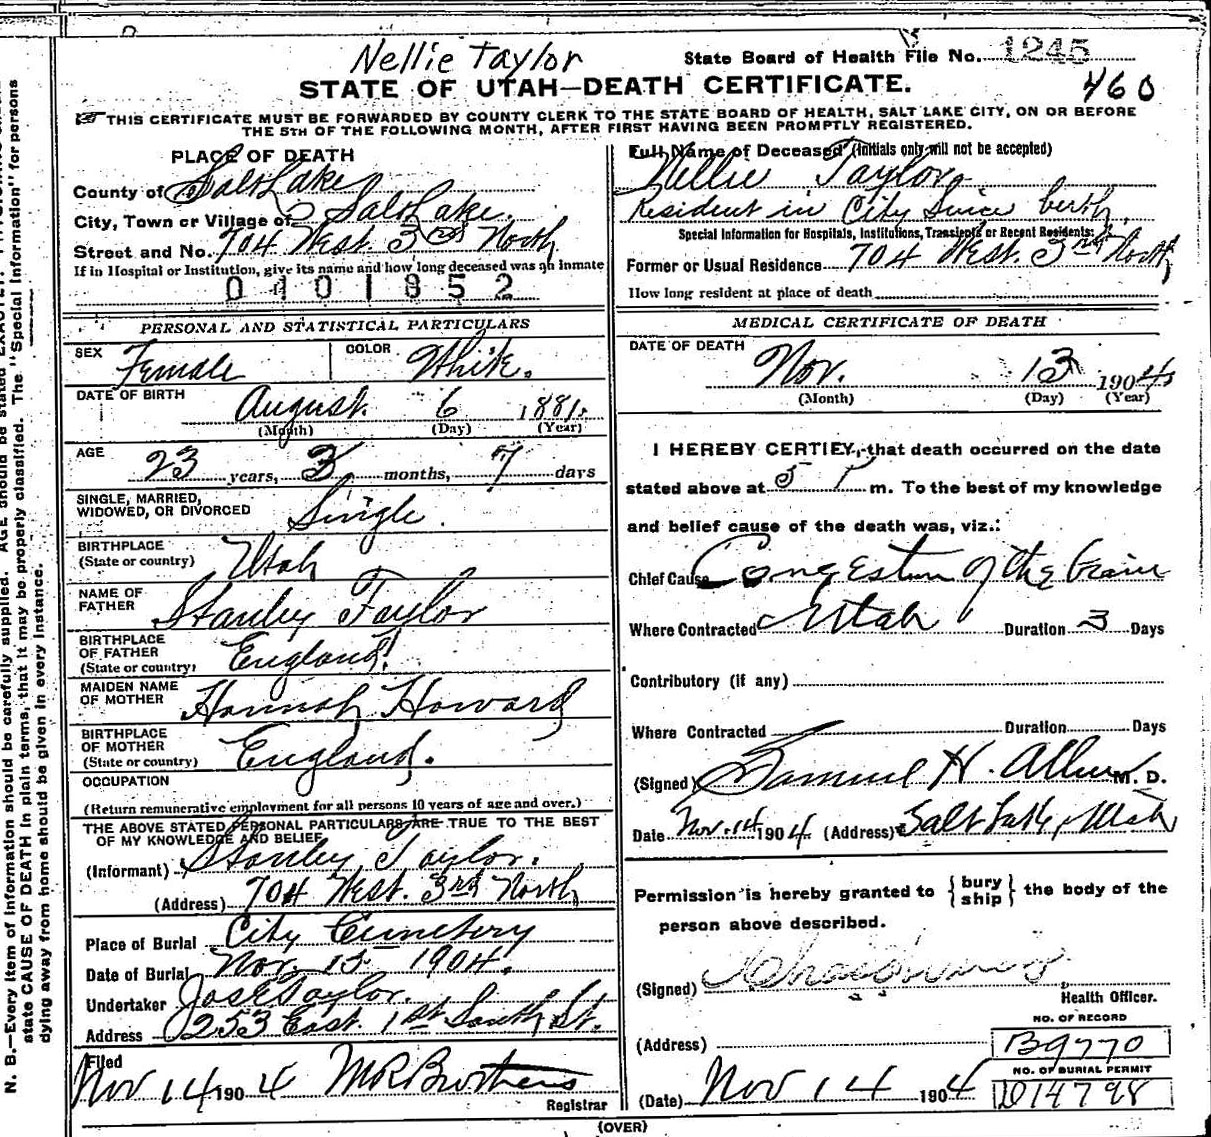 Nellie Taylor
State Board of Health File No. 1245
STATE OF UTAH—DEATH CERTIFICATE.
460
THIS CERTIFICATE MUST BE FORWARDED BY COUNTY CLERK TO THE STATE BOARD OF HEALTH, SALT LAKE CITY, ON OR BEFORE
THE 5TH OF THE FOLLOWING MONTH, AFTER FIRST HAVING BEEN PROMPTLY REGISTERED.
PLACE OF DEATH
County of Salt Lake
City, Town or Village of Salt Lake.
Street and No. 704 West 3rd North
If in Hospital or Institution, give its name and how long deceased was an inmate
0401852
PERSONAL AND STATISTICAL PARTICULARS
SEX Female COLOR White.
DATE OF BIRTH August 6 1881.
(Month) (Day) (Year)
AGE 23 years, 3 months, 7 days
SINGLE, MARRIED,
WIDOWED, OR DIVORCED Single.
BIRTHPLACE
(State or country) Utah
NAME OF
FATHER Stanley Taylor
BIRTHPLACE
OF FATHER
(State or country) England.
MAIDEN NAME
OF MOTHER Hannah Howard
BIRTHPLACE
OF MOTHER
(State or country) England.
OCCUPATION
(Return remunerative employment for all persons 10 years of age and over.)
THE ABOVE STATED PERSONAL PARTICULARS ARE TRUE TO THE BEST
OF MY KNOWLEDGE AND BELIEF
(Informant) Stanley Taylor.
(Address) 704 West. 3rd North
Place of Burial City Cemetery
Date of Burial Nov. 15 1904.
Undertaker Jos E Taylor.
Address 253 East. 1st South St.
Filed
Nov 14 1904 Registrar
Full Name of Deceased (Initials only will not be accepted)
Nellie Taylor
Resident in City Since berth,
Special Information for Hospitals, Institutions, Transients or Recent Residents:
Former or Usual Residence 704 West. 3rd North
How long resident at place of death
MEDICAL CERTIFICATE OF DEATH
DATE OF DEATH
Nov. 13 1904
(Month) (Day) (Year)
I HEREBY CERTIFY, that death occurred on the date
stated above at 5 P m. To the best of my knowledge
and belief cause of the death was, viz.:
Chief Cause Congestion of the brain
Where Contracted Utah Duration 3 Days
Contributory (if any)
Where Contracted Duration Days
(Signed) Samuel H. Allen M. D.
Date Nov. 14 1904 (Address) Salt Lake, Utah
Permission is hereby granted to {bury
ship} the body of the
person above described.
(Signed)
Health Officer.
NO. OF RECORD
(Address) B9770
NO. OF BURIAL PERMIT
(Date) Nov 14 1904 D14798
(OVER)
N. B.—Every item of information should be carefully supplied. AGE should be stated EXACTLY.
state CAUSE OF DEATH in plain terms, that it may be properly classified. The "Special Information" for persons
dying away from home should be given in every instance.